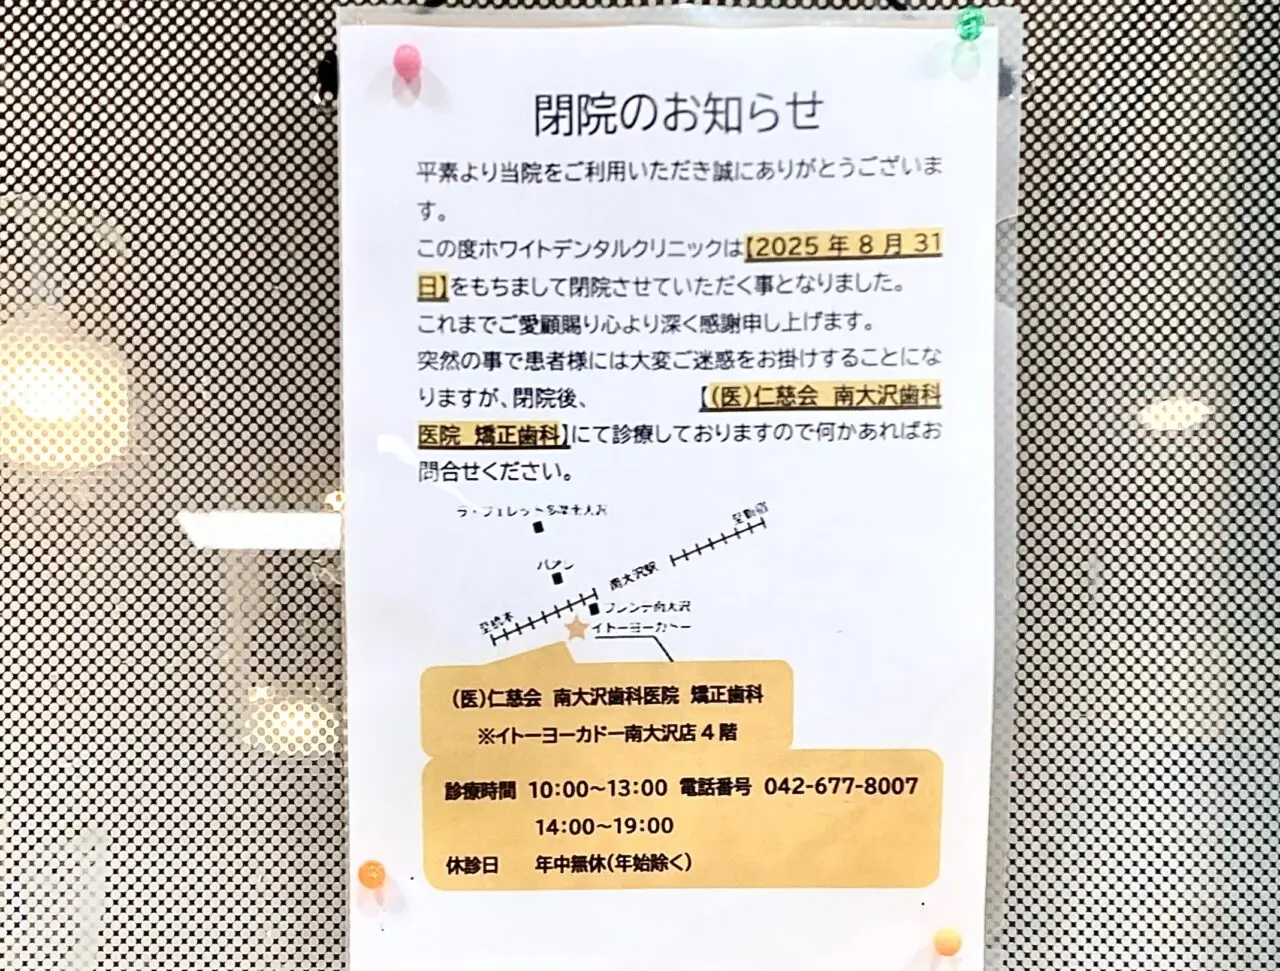 閉院のお知らせ
平素より当院をご利用いただき誠にありがとうございま
す。
この度ホワイトデンタルクリニックは【2025 年 8 月 31
日】をもちまして閉院させていただく事となりました。
これまでご愛顧賜り心より深く感謝申し上げます。
突然の事で患者様には大変ご迷惑をお掛けすることにな
りますが、閉院後、 【(医)仁慈会 南大沢歯科
医院 矯正歯科】にて診療しておりますので何かあればお
問合せください。
ラ・フェレット多摩南大沢
至新宿
パオレ
南大沢駅
フレンテ南大沢
至橋本
イトーヨーカドー
(医)仁慈会 南大沢歯科医院 矯正歯科
※イトーヨーカドー南大沢店 4 階
診療時間 10:00～13:00 電話番号 042-677-8007
14:00～19:00
休診日 年中無休(年始除く)